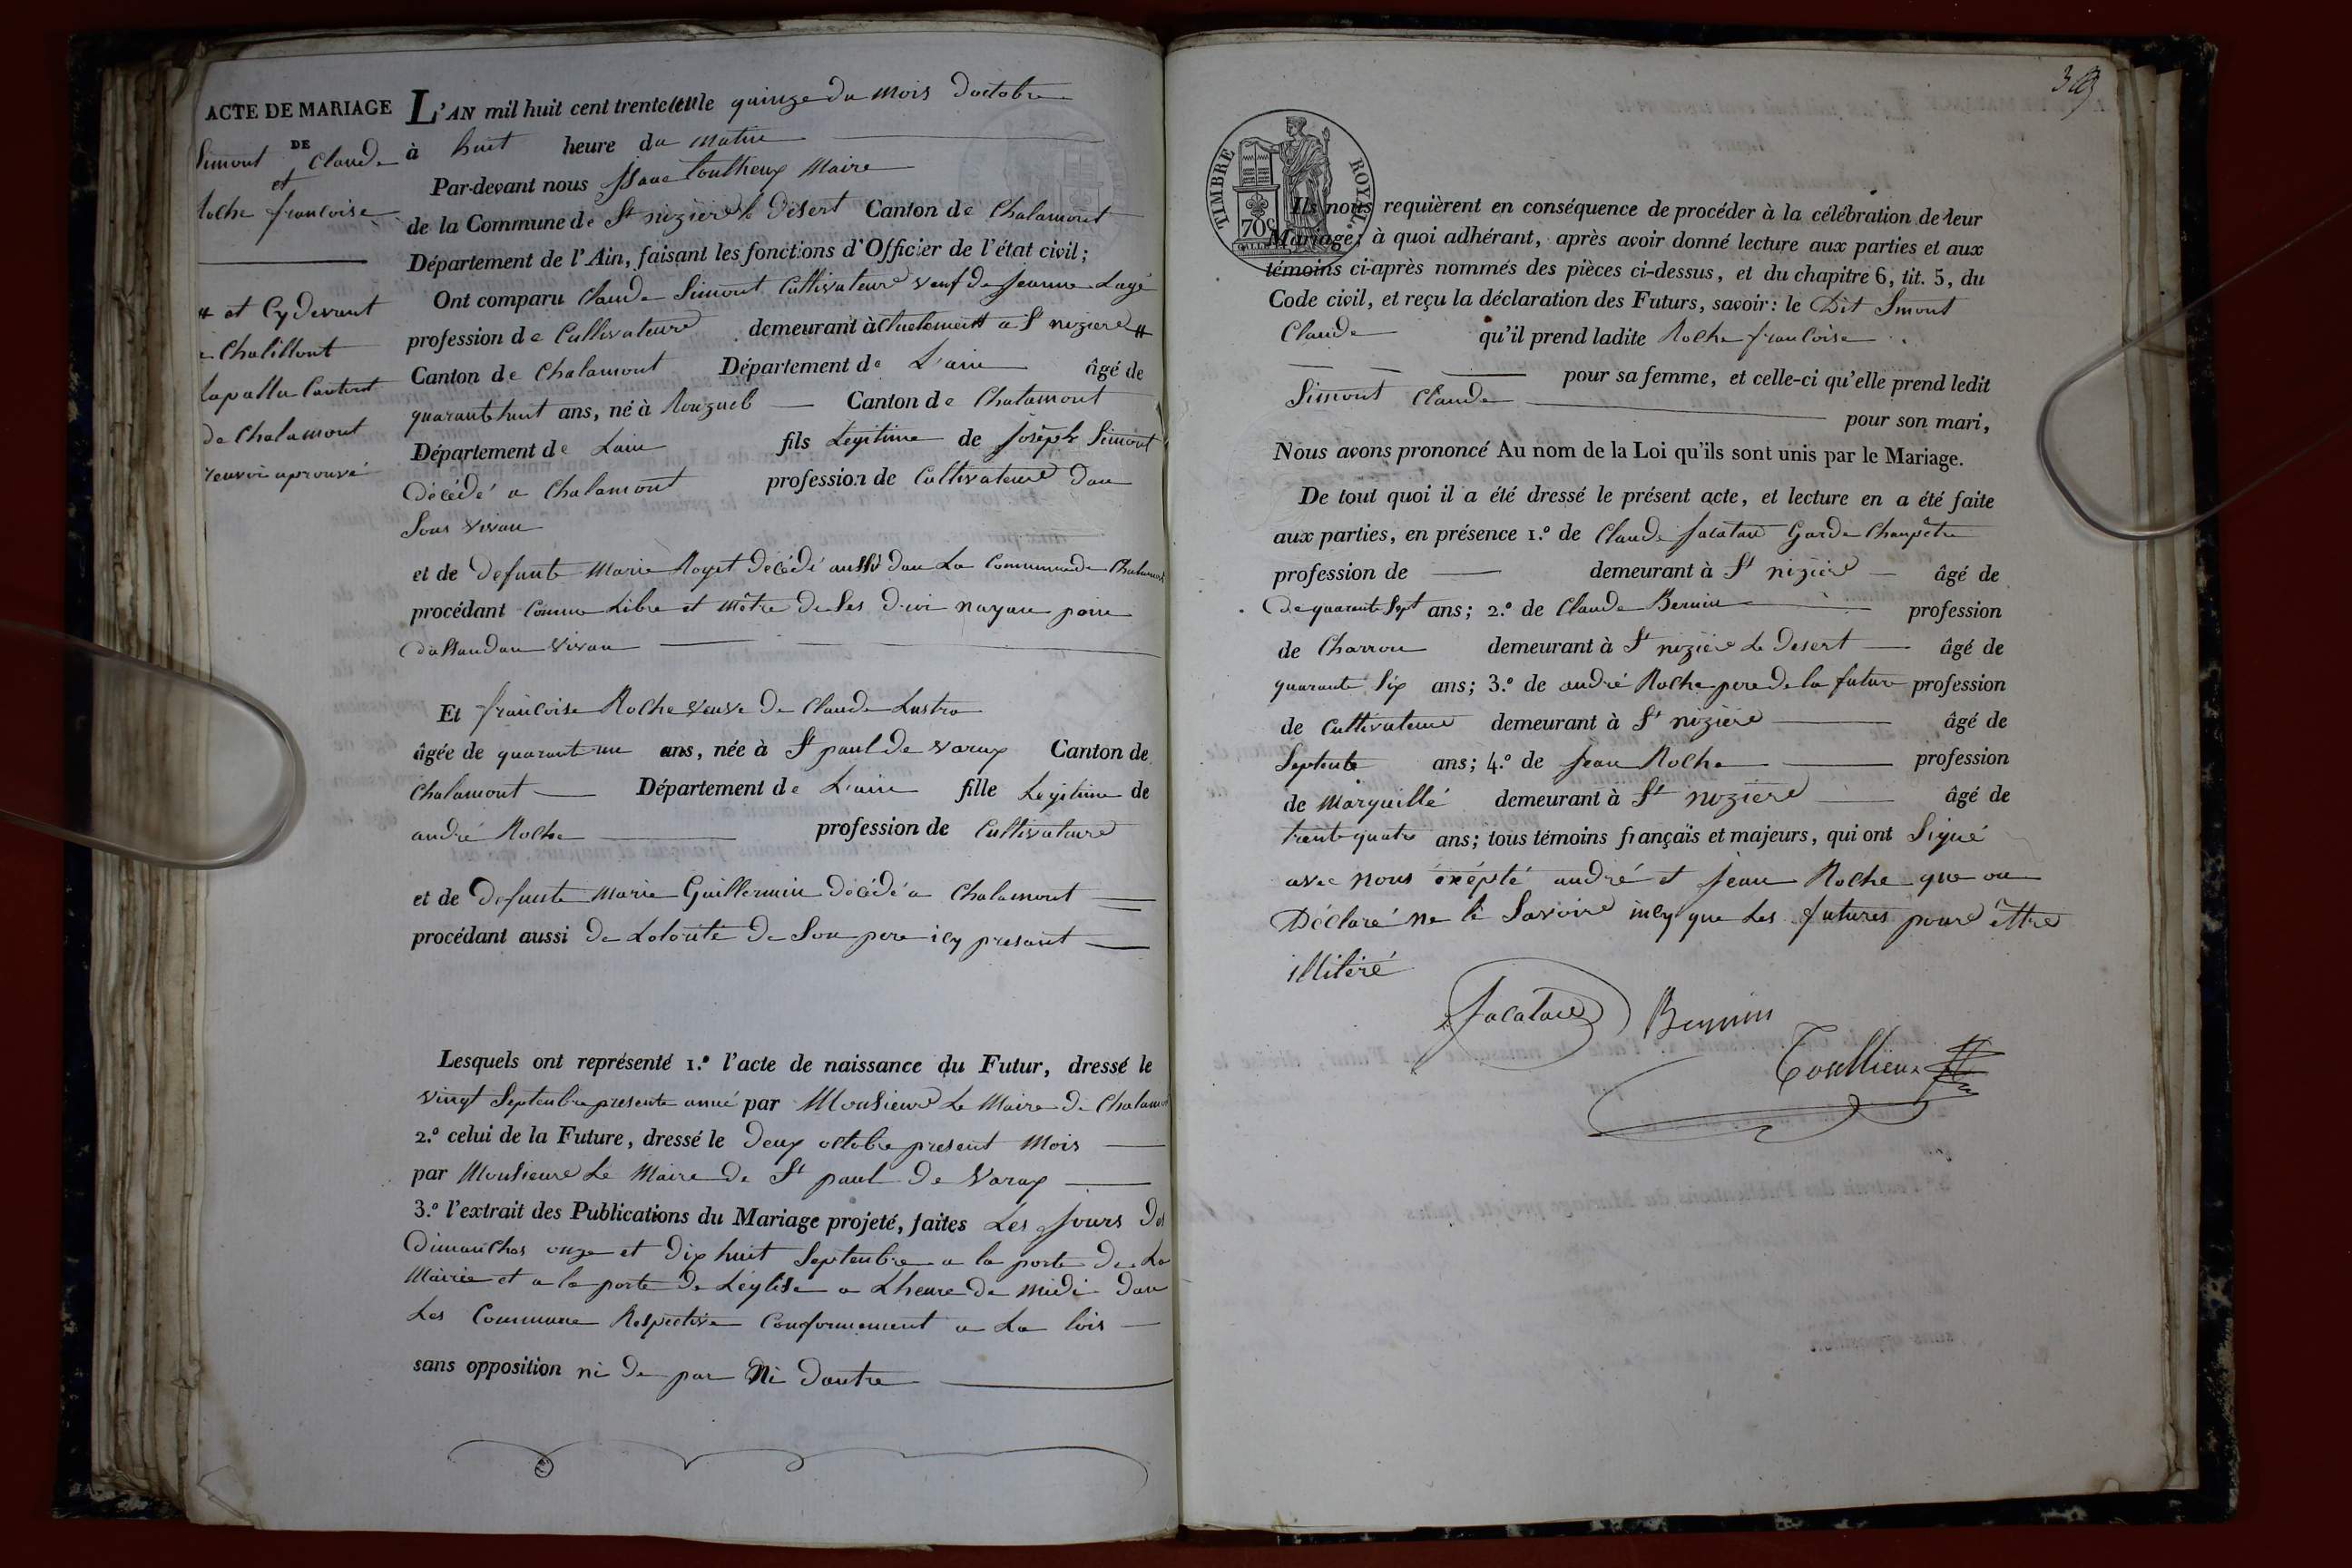 ACTE DE MARIAGE
DE
Simont Claude
et
Roche francoise
# et Cydevant
a Chatillont
lapallu Cantont
de Chalamont
renvoi aprouvé
L'AN mil huit cent trente le quinze du mois doctobre
à huit heure du matin
Par-devant nous Maire
de la Commune de St nizier le Désert Canton de Chalamont
Département de l'Ain, faisant les fonctions d'Officier de l'état civil;
Ont comparu Claude Simont Cultivateur veuf de Jeanne Lagé
profession de Cultivateur demeurant à actuelement a St nizier #
Canton de Chalamont Département de L'ain âgé de
quarante huit ans, né à Canton de Chalamont
Département de Lain fils Legitime de Joseph Simont
décédé a Chalamont profession de Cultivateur dan
Sons vivan
et de defunte Marie Royet décédé aussi dan La Commune de Chalamont
procédant Comme Libre et mêtre de Ses droi nayan poin
dassandan vivan
Et francoise Roche veuve de Claude Lustro
âgée de quarante un ans, née à St paul de varax Canton de
Chalamont Département de L'ain fille Legitime de
andré Roche profession de Cultivateur
et de defunte Marie Guillermin décédé a Chalamont
procédant aussi de Lotorité de Son pere icy presant
Lesquels ont représenté 1.º l'acte de naissance du Futur, dressé le
vingt Septembre presente anné par Monsieur Le Maire de Chalamont
2.º celui de la Future, dressé le deux octobre present Mois
par Monsieur Le Maire de St paul de Varax
3.º l'extrait des Publications du Mariage projeté, faites Les Jours des
Dimanches onze et dix huit Septembre a la porte de La
Mairie et a la porte de Léglise a Lheure de midi dan
Les Commune Respective Conformement a La lois
sans opposition ni de par Ni dautre
TIMBRE ROYAL
70c
Ils nous requièrent en conséquence de procéder à la célébration de leur
Mariage; à quoi adhérant, après avoir donné lecture aux parties et aux
témoins ci-après nommés des pièces ci-dessus, et du chapitre 6, tit. 5, du
Code civil, et reçu la déclaration des Futurs, savoir: le Dit Simont
Claude qu'il prend ladite Roche francoise
pour sa femme, et celle-ci qu'elle prend ledit
Simont Claude pour son mari,
Nous avons prononcé Au nom de la Loi qu'ils sont unis par le Mariage.
De tout quoi il a été dressé le présent acte, et lecture en a été faite
aux parties, en présence 1.º de Claude Garde Champêtre
profession de demeurant à St nizier âgé de
de quarante Sept ans; 2.º de Claude Bernin profession
de Charron demeurant à St nizier Le Desert âgé de
quarante Six ans; 3.º de andré Roche pere de la future profession
de Cultivateur demeurant à St nizier âgé de
Septente ans; 4.º de Jean Roche profession
de Marguillé demeurant à St nizier âgé de
trente quatre ans; tous témoins français et majeurs, qui ont Signé
avec nous éxépté andré et Jean Roche que on
Déclaré ne le Savoire incy que Les futures pour èttre
illitéré
Bernin